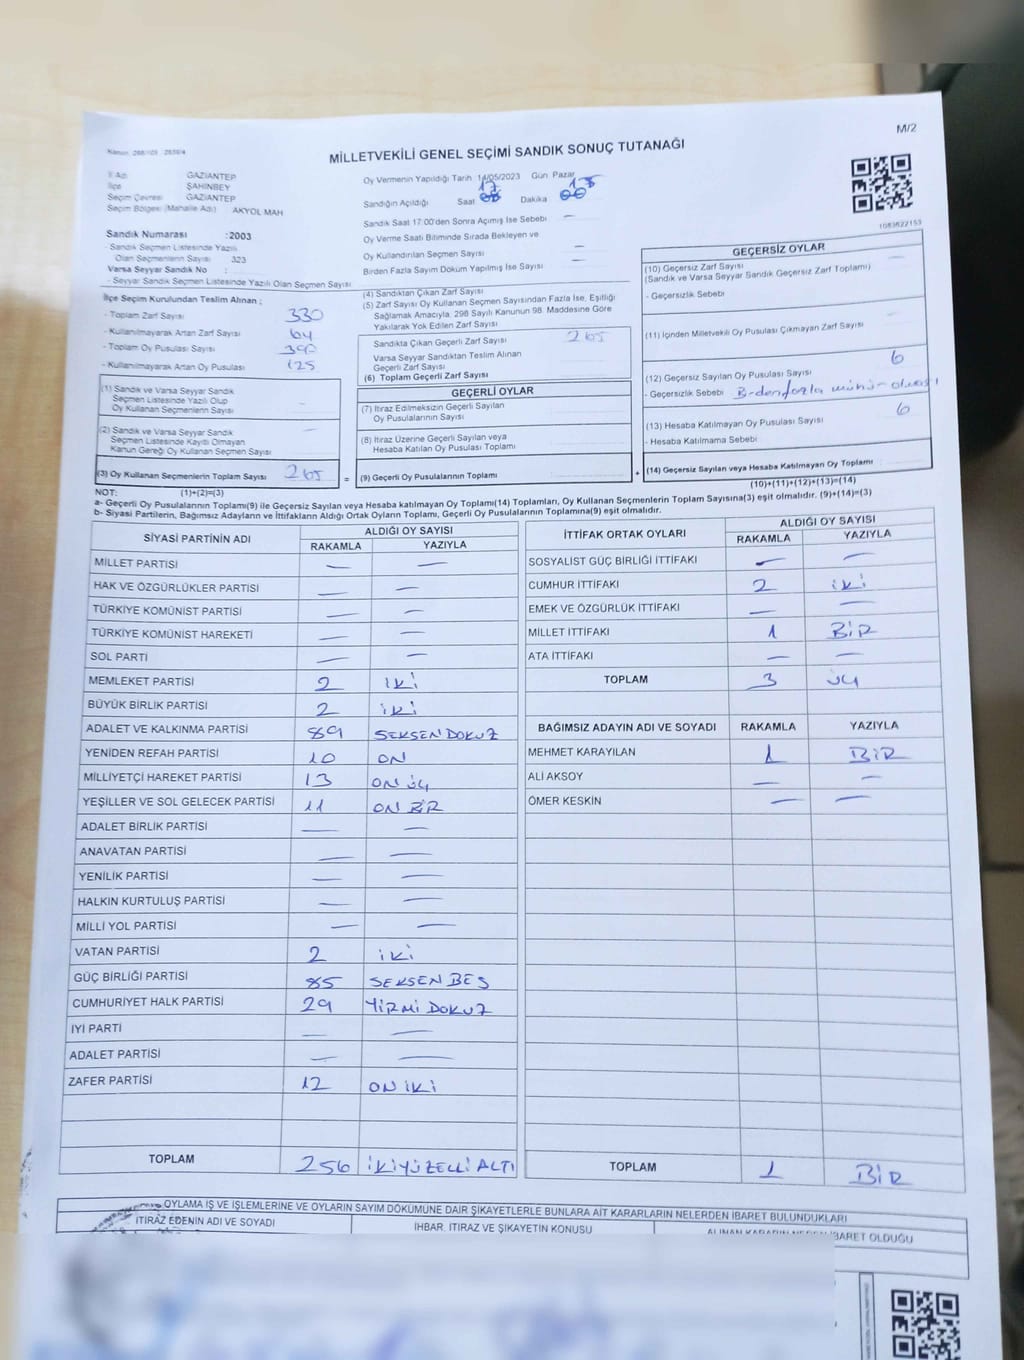 M/2
MİLLETVEKİLİ GENEL SEÇİMİ SANDIK SONUÇ TUTANAĞI
İl Adı GAZİANTEP
İlçe ŞAHİNBEY
Seçim Çevresi GAZİANTEP
Seçim Bölgesi (Mahalle Adı) AKYOL MAH
Sandık Numarası :2003
- Sandık Seçmen Listesinde Yazılı
Olan Seçmenlerin Sayısı 323
Varsa Seyyar Sandık No :
- Seyyar Sandık Seçmen Listesinde Yazılı Olan Seçmen Sayısı
Oy Vermenin Yapıldığı Tarih 14/05/2023 Gün Pazar
Sandığın Açıldığı Saat 17 Dakika 15
Sandık Saat 17:00'den Sonra Açımış İse Sebebi —
Oy Verme Saati Bitiminde Sırada Bekleyen ve
Oy Kullandırılan Seçmen Sayısı —
Birden Fazla Sayım Döküm Yapılmış İse Sayısı —
1083622153
İlçe Seçim Kurulundan Teslim Alınan ;
- Toplam Zarf Sayısı 330
- Kullanılmayarak Artan Zarf Sayısı 64
- Toplam Oy Pusulası Sayısı 390
- Kullanılmayarak Artan Oy Pusulası 125
(1) Sandık ve Varsa Seyyar Sandık
Seçmen Listesinde Yazılı Olup
Oy Kullanan Seçmenlerin Sayısı –
(2) Sandık ve Varsa Seyyar Sandık
Seçmen Listesinde Kayıtlı Olmayan
Kanun Gereği Oy Kullanan Seçmen Sayısı —
(3) Oy Kullanan Seçmenlerin Toplam Sayısı 265
(1)+(2)=(3)
(4) Sandıktan Çıkan Zarf Sayısı
(5) Zarf Sayısı Oy Kullanan Seçmen Sayısından Fazla İse, Eşitliği
Sağlamak Amacıyla, 298 Sayılı Kanunun 98. Maddesine Göre
Yakılarak Yok Edilen Zarf Sayısı
Sandıkta Çıkan Geçerli Zarf Sayısı 265
Varsa Seyyar Sandıktan Teslim Alınan
Geçerli Zarf Sayısı
(6) Toplam Geçerli Zarf Sayısı
GEÇERLİ OYLAR
(7) İtiraz Edilmeksizin Geçerli Sayılan
Oy Pusulalarının Sayısı
(8) İtiraz Üzerine Geçerli Sayılan veya
Hesaba Katılan Oy Pusulası Toplamı
= (9) Geçerli Oy Pusulalarının Toplamı
GEÇERSİZ OYLAR
(10) Geçersiz Zarf Sayısı —
(Sandık ve Varsa Seyyar Sandık Geçersiz Zarf Toplamı)
- Geçersizlik Sebebi
(11) İçinden Milletvekili Oy Pusulası Çıkmayan Zarf Sayısı –
(12) Geçersiz Sayılan Oy Pusulası Sayısı 6
- Geçersizlik Sebebi
(13) Hesaba Katılmayan Oy Pusulası Sayısı 6
- Hesaba Katılmama Sebebi
+ (14) Geçersiz Sayılan veya Hesaba Katılmayan Oy Toplamı :
(10)+(11)+(12)+(13)=(14)
NOT:
a- Geçerli Oy Pusulalarının Toplamı(9) ile Geçersiz Sayılan veya Hesaba katılmayan Oy Toplamı(14) Toplamları, Oy Kullanan Seçmenlerin Toplam Sayısına(3) eşit olmalıdır. (9)+(14)=(3)
b- Siyasi Partilerin, Bağımsız Adayların ve İttifakların Aldığı Ortak Oyların Toplamı, Geçerli Oy Pusulalarının Toplamına(9) eşit olmalıdır.
SİYASİ PARTİNİN ADI ALDIĞI OY SAYISI
RAKAMLA YAZIYLA
MİLLET PARTİSİ — —
HAK VE ÖZGÜRLÜKLER PARTİSİ — —
TÜRKİYE KOMÜNİST PARTİSİ — —
TÜRKİYE KOMÜNİST HAREKETİ — —
SOL PARTİ — —
MEMLEKET PARTİSİ 2 İKİ
BÜYÜK BİRLİK PARTİSİ 2 İKİ
ADALET VE KALKINMA PARTİSİ 89 SEKSEN DOKUZ
YENİDEN REFAH PARTİSİ 10 ON
MİLLİYETÇİ HAREKET PARTİSİ 13 ON ÜÇ
YEŞİLLER VE SOL GELECEK PARTİSİ 11 ON BİR
ADALET BİRLİK PARTİSİ — —
ANAVATAN PARTİSİ — —
YENİLİK PARTİSİ — —
HALKIN KURTULUŞ PARTİSİ — —
MİLLİ YOL PARTİSİ — —
VATAN PARTİSİ 2 İKİ
GÜÇ BİRLİĞİ PARTİSİ 85 SEKSEN BEŞ
CUMHURİYET HALK PARTİSİ 29 YİRMİ DOKUZ
İYİ PARTİ — —
ADALET PARTİSİ — —
ZAFER PARTİSİ 12 ON İKİ
TOPLAM 256 İKİYÜZELLİ ALTI
İTTİFAK ORTAK OYLARI ALDIĞI OY SAYISI
RAKAMLA YAZIYLA
SOSYALİST GÜÇ BİRLİĞİ İTTİFAKI — —
CUMHUR İTTİFAKI 2 İKİ
EMEK VE ÖZGÜRLÜK İTTİFAKI — —
MİLLET İTTİFAKI 1 BİR
ATA İTTİFAKI — —
TOPLAM 3 ÜÇ
BAĞIMSIZ ADAYIN ADI VE SOYADI RAKAMLA YAZIYLA
MEHMET KARAYILAN 1 BİR
ALİ AKSOY — —
ÖMER KESKİN — —
TOPLAM 1 BİR
OYLAMA İŞ VE İŞLEMLERİNE VE OYLARIN SAYIM DÖKÜMÜNE DAİR ŞİKAYETLERLE BUNLARA AİT KARARLARIN NELERDEN İBARET BULUNDUKLARI
İTİRAZ EDENİN ADI VE SOYADI İHBAR, İTİRAZ VE ŞİKAYETİN KONUSU ALINAN KARARIN NEDEN İBARET OLDUĞU